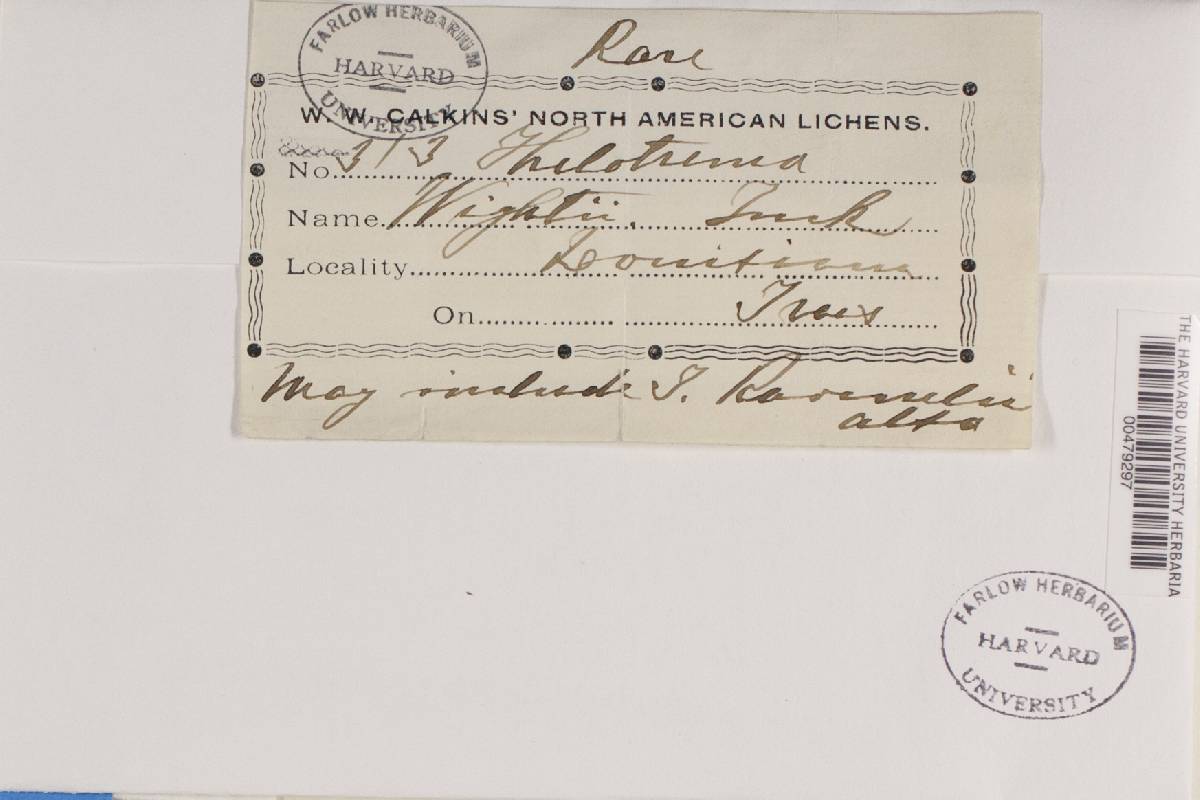 Rare
FARLOW HERBARIUM
HARVARD
UNIVERSITY
W. W. CALKINS' NORTH AMERICAN LICHENS.
No. 313 Thelotrema
Name Wightii. Tuck
Locality Louisiana
On Trees
May include T. Ravenelii
also
THE HARVARD UNIVERSITY HERBARIA
00479297
FARLOW HERBARIUM
HARVARD
UNIVERSITY